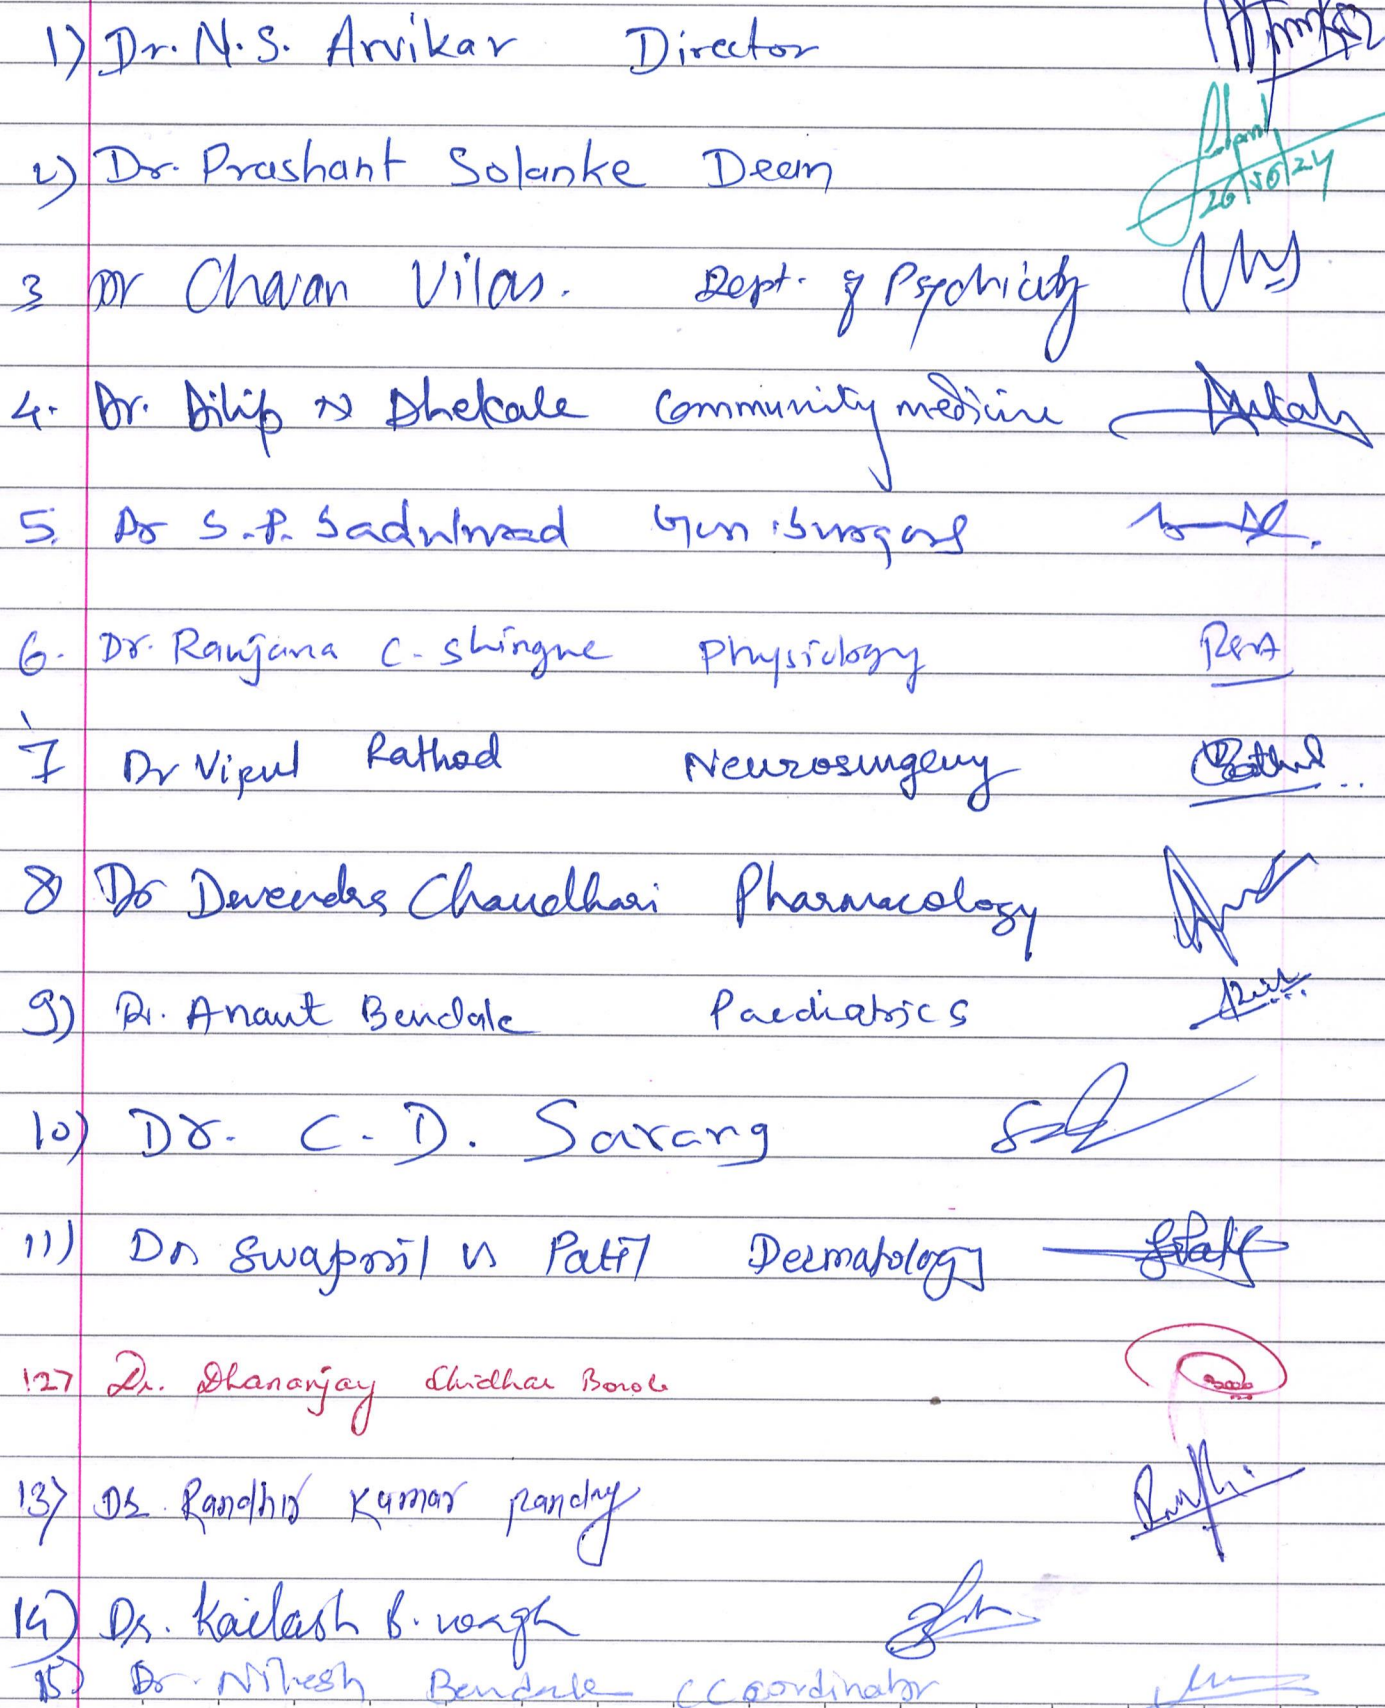 1) Dr. N. S. Arvikar Director
2) Dr. Prashant Solanke Dean 26/06/24
3 Dr Chavan Vilas. Dept. of Psychiatry
4. Dr. Dilip N Dhekale Community medicine
5. Dr S. P. Gen. Surgery
6. Dr. Ranjana C. Shingne Physiology
7 Dr Vipul Rathod Neurosurgery
8) Dr Devendra Chaudhari Pharmacology
9) Dr. Anant Bendale Paediatrics
10) Dr. C. D. Sarang
11) Dr Swapnil Patil Dermatology
12) Dr. Dhananjay Shridhar Borole
13) Dr. Randhir Kumar Pandey
14) Dr. Kailash B. Wagh
15) Dr. Nilesh Bendale